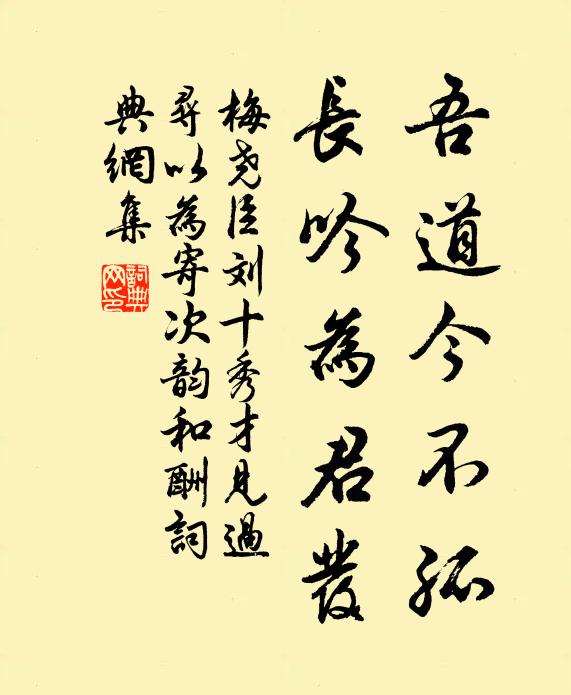 吾道今不孤
長吟為君發
梅尧臣刘十秀才見過
尋以為寄次韵和酬詞
典網集
詞典网印